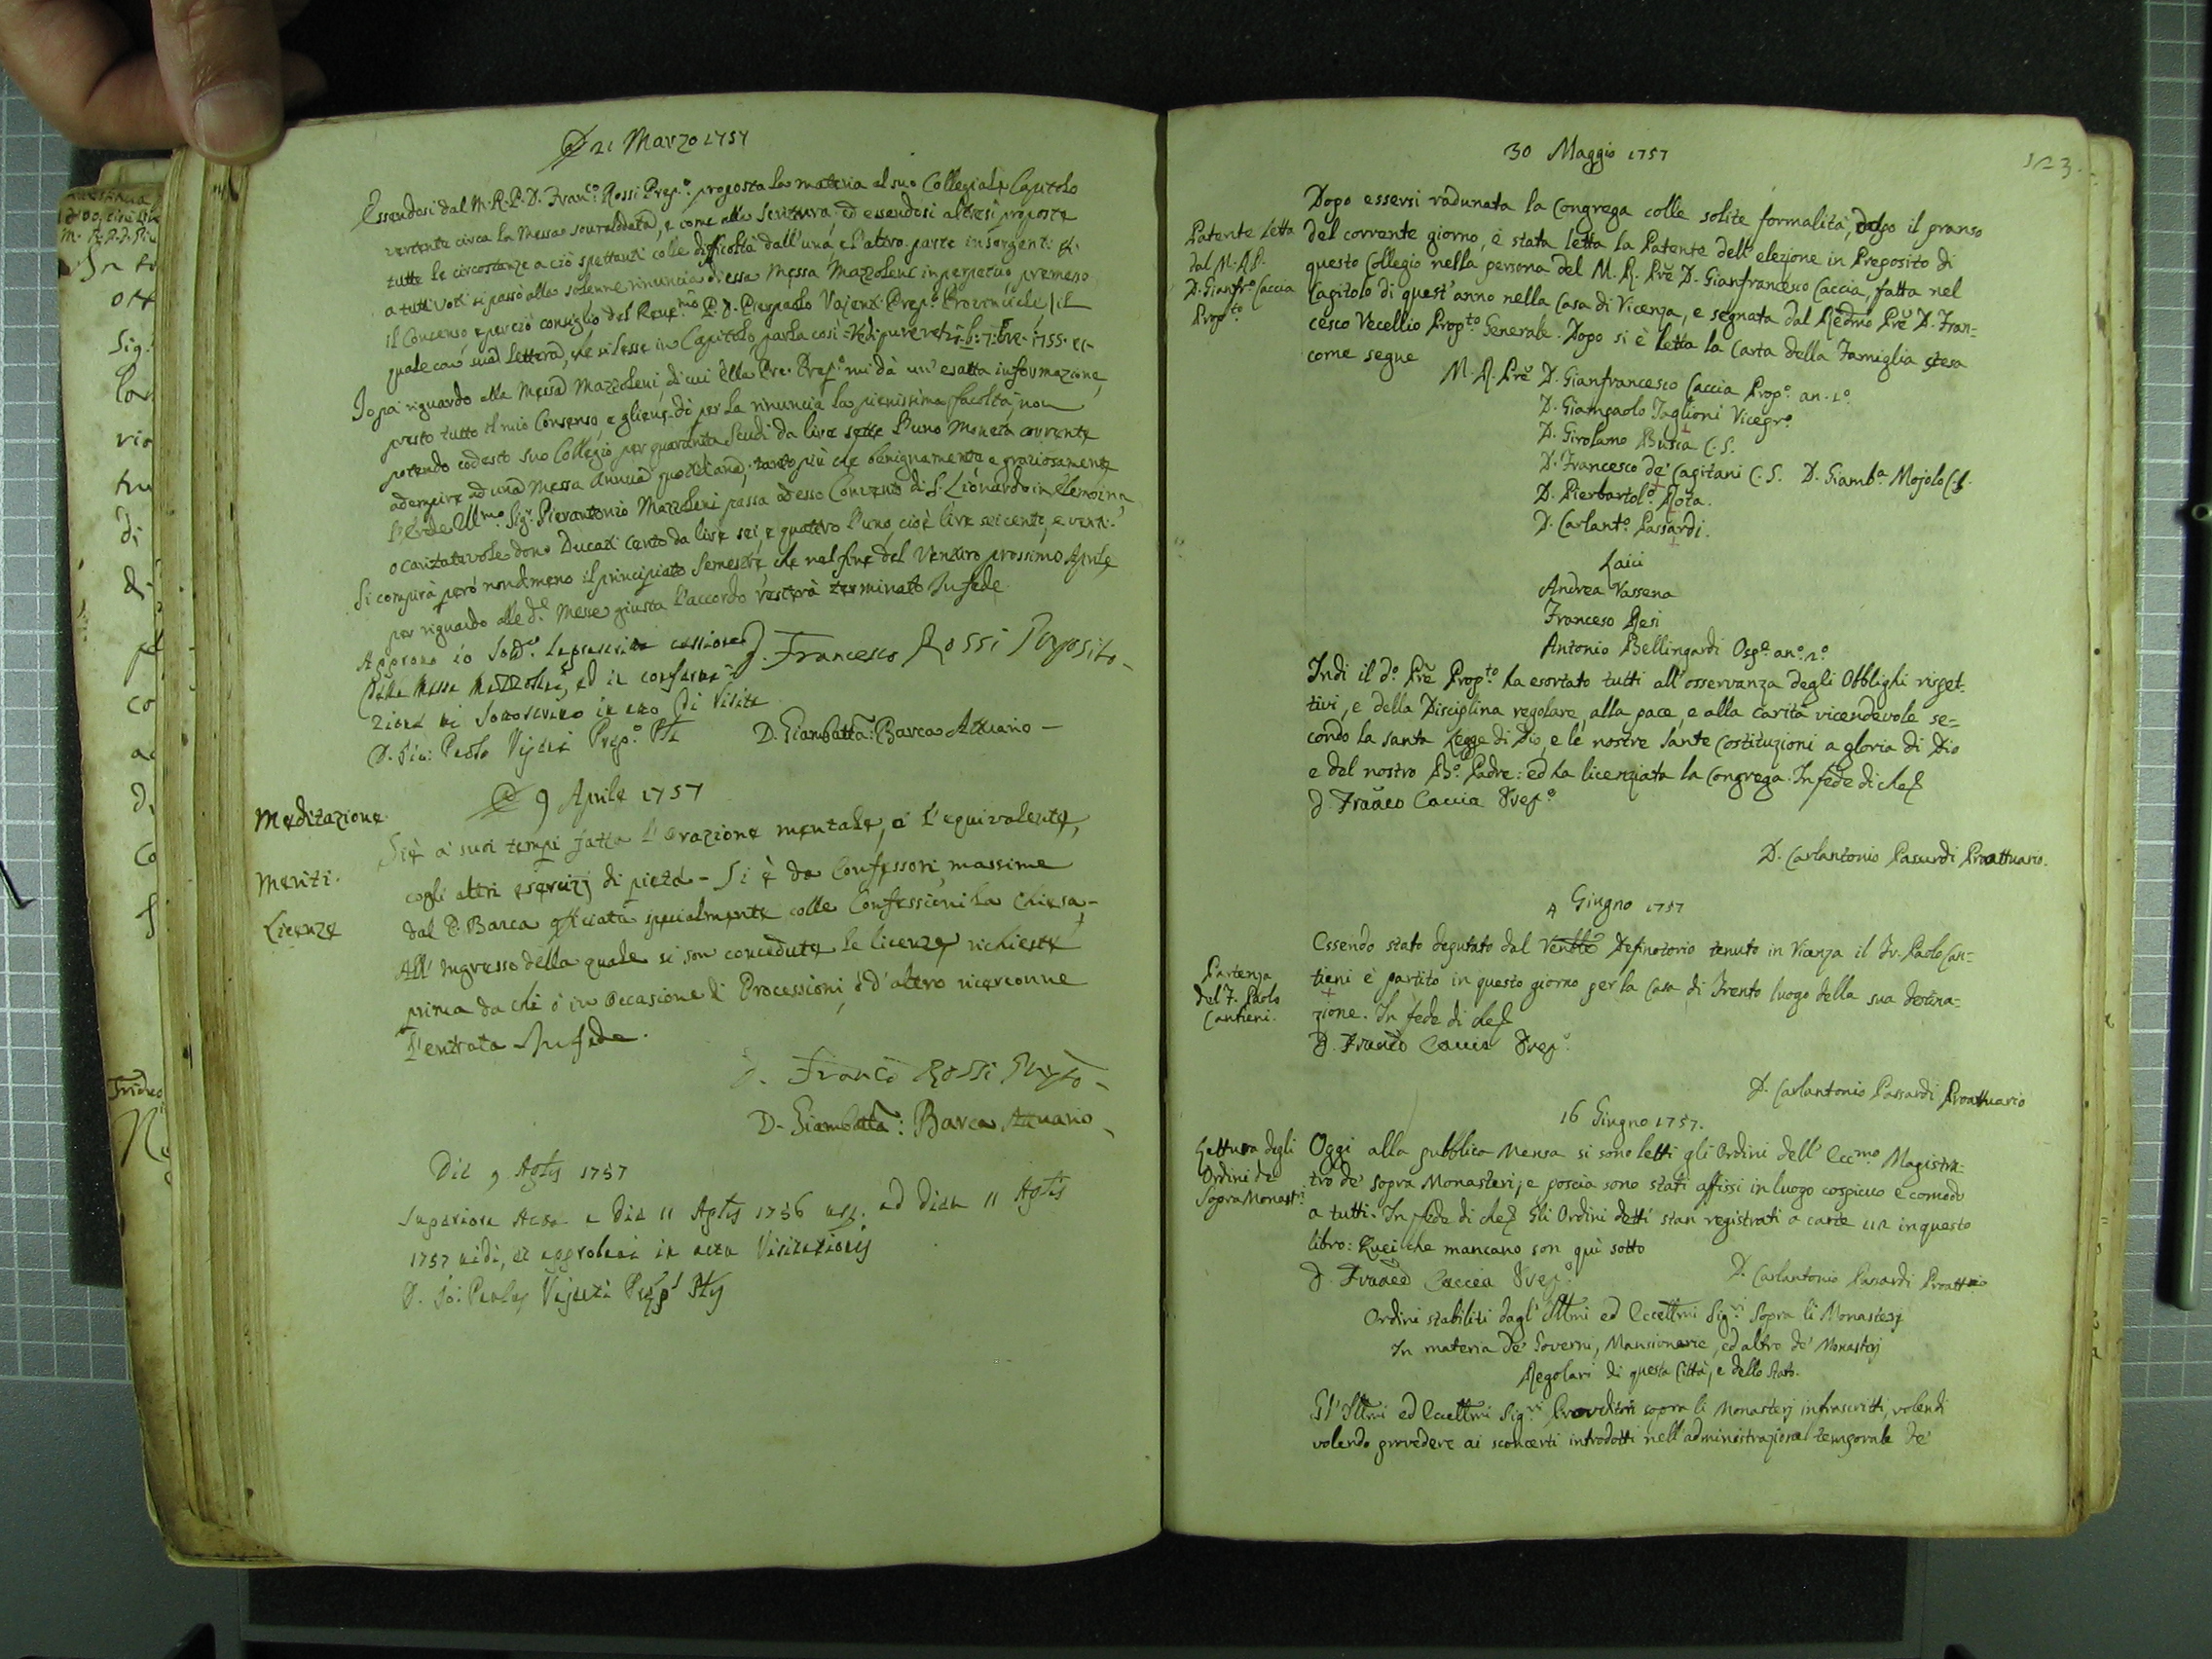 21 Marzo 1757
Essendosi dal M. R. P. D. Fran.co Rossi Prep.o proposta la materia al suo Collegiale Capitolo
vertente circa la Messa souraddetta, e come alla Scrittura: ed essendosi altresì proposte
tutte le circostanze a ciò spettanti colle difficoltà dall'una, e l'altra parte insorgenti
a tutti voti si passò alla solenne rinuncia di essa Messa Mazzoleni in perpetuo, premesso
il Concenso, e perciò consiglio del Reue.mo P. D. Provinciale, il
quale con sua lettera, che si lesse in Capitolo, parla così 1755
Io pa riguardo alla Messa Mazzoleni, di cui Ella Pre. Prep.o mi dà un'esatta informazione,
presto tutto il mio Consenso, e gliene dò per la rinuncia la pienissima facoltà, non
potendo codesto suo Collegio per quaranta Scudi da lire sette l'uno moneta corrente
adempire ad una Messa Annua quotidiana; tanto più che benignamente e graziosamente
l'Erede Ill.mo Sig.r Pierantonio Mazzoleni passa ad esso Convento di S. Lionardo in Elemosina,
o caritatevole dono Ducati Cento da lire sei, e quattro l'uno, cioè lire seicento, e venti.
Si compirà però nondimeno il principiato Semestre che nel fine del venturo prossimo Aprile
per riguardo alle d.e Messe giusta l'accordo resterà terminato In fede
D. Francesco Rossi Preposito
Approvo io sod.o la presente cessione
della Messa Mazzoleni, ed in conferma
zione mi sottoscrivo in atto di Visita
D. Gio: Paolo Prep.o Ple
D. Giambatta: Barca Attuario
9 Aprile 1757
Meditazione.
Si è a' suoi tempi fatta l'Orazione mentale, o l'equivalente,
Meriti.
cogli altri esercizj di pietà - Si è da Confessori, massime
Licenze
dal P. Barca officiata specialmente colle Confessioni la Chiesa -
All'ingresso della quale si son concedute le licenze richieste
prima da chi ò in occasione di Processioni, ò d'altro ricerconne
l'entrata In fede.
D. Fran.co Rossi Prep.to
D. Giambatta: Barca Attuario
Die 9 Aplis 1757
Superiora Acta a Die 11 Aplis 1756 usq. ad Diem 11 Aplis
1757 vidi, et approbavi in actu Visitationis
D. Jo: Paulus
123.
30 Maggio 1757
Dopo essersi radunata la Congrega colle solite formalità, dopo il pranso
Patente letta
dal M. R. P.
D. Gianfr.o Caccia
Prop.to
del corrente giorno, è stata letta la Patente dell'elezione in Preposito di
questo Collegio nella persona del M. R. Pre D. Gianfrancesco Caccia, fatta nel
Capitolo di quest'anno nella Casa di Vicenza, e segnata dal Redmo Pre D. Fran=
cesco Vecellio Prop.to Generale. Dopo si è letta la Carta della Famiglia stesa
come segue
M. R. Pre D. Gianfrancesco Caccia Prop.o an. 1.o
D. Giampaolo Taglioni Vicepr.o
D. Girolamo Busca C. S.
D. Francesco de' Capitani C. S. D. Giamb.a Mojolo C. S.
D. Pierbartol.o Rota.
D. Carlant.o Passardi.
Laici
Andrea Vassena
Franceso Resi
Antonio Bellingardi Osp.e an.o 2.o
Indi il d.o Pre Prop.to ha esortato tutti all'osservanza degli Obblighi rispet=
tivi, e della Disciplina regolare, alla pace, e alla carità vicendevole se=
condo la santa Legge di Dio, e le nostre Sante Costituzioni a gloria di Dio
e del nostro B.o Padre: ed ha licenziata la Congrega. In fede di che
D. Franco Caccia Prep.o
D. Carlantonio Passardi Proattuario.
4 Giugno 1757
Essendo stato deputato dal Ven.ble Definotorio tenuto in Vicenza il Fr. Paolo Can=
Partenza
del F. Paolo
Cantieni.
tieni è partito in questo giorno per la Casa di Trento luogo della sua destina=
zione. In fede di che
D. Franco Caccia Prep.o
D. Carlantonio Passardi Proattuario
16 Giugno 1757.
Lettura degli
Ordini de
Sopra Monast.i
Oggi alla pubblica Mensa si sono letti gli Ordini dell'Ecc.mo Magistra=
tro de' sopra Monasterj, e poscia sono stati affissi in luogo cospicuo e comodo
a tutti. In fede di che Gli Ordini detti stan registrati a carte 112 in questo
libro: Quei che mancano son quì sotto
D. Franco Caccia Prep.o
D. Carlantonio Passardi Proatt.io
Ordini stabiliti dagl'Illmi ed Eccellmi Sig.ri Sopra li Monasterj
In materia de' Governi, Mansionarie, ed altro de' Monasterj
Regolari di questa Città, e dello Stato.
Gl'Illmi ed Eccellmi Sig.ri Proveditori sopra li Monasterj infrascritti, volendi
volendo provedere ai sconcerti introdotti nell'administrazione temporale de'